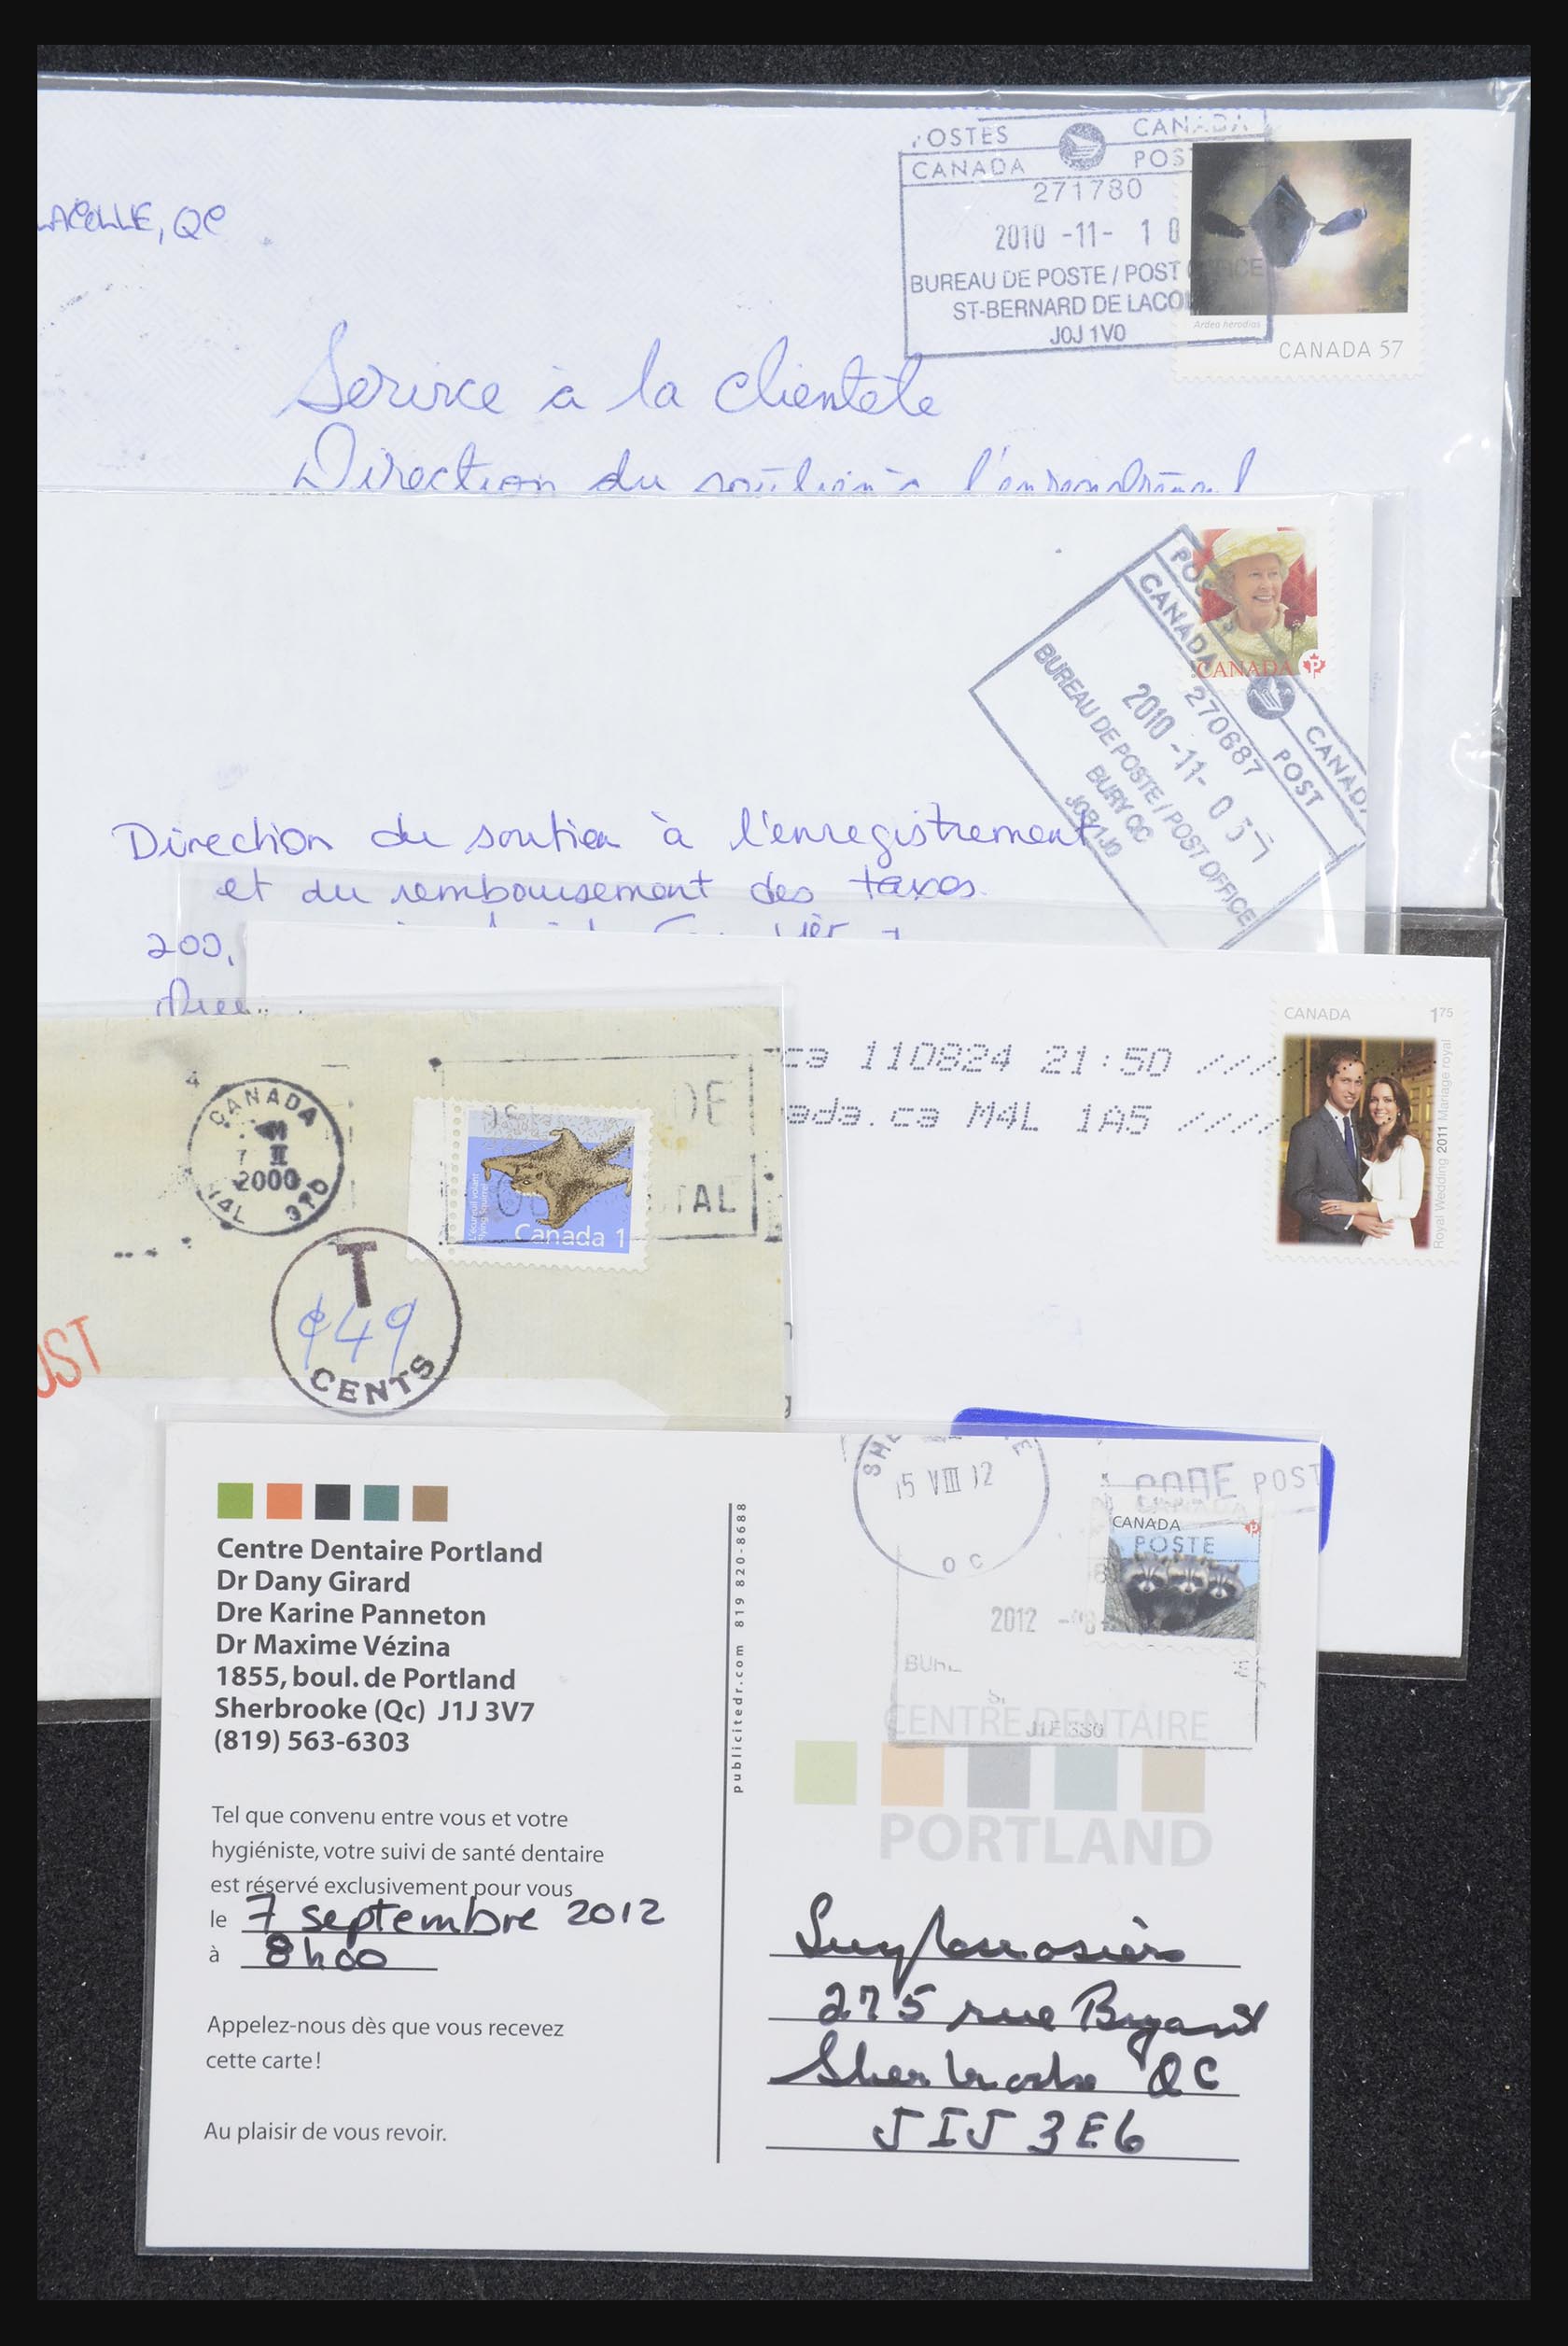 POSTES CANADA
CANADA POS
271780
2010 -11- 10
BUREAU DE POSTE / POST OFFICE
ST-BERNARD DE LACOL
J0J 1V0
Ardea herodias
CANADA 57
LACOLLE, QC
Service à la clientèle
Direction du soutien à l'enregistrement
CANADA P
POS
CANADA
CANADA
POST
270687
2010 -11- 05
BUREAU DE POSTE / POST OFFICE
BURY QC
J0B 1J0
Direction du soutien à l'enregistrement
et du remboursement des taxes
200,
ca 110824 21:50 /////
ada.ca M4L 1A5 /////
CANADA 175
Royal Wedding 2011 Mariage royal
4
CANADA
7 II
2000
DE
TAL
L'écureuil volant
Flying squirrel
Canada 1
T
¢49
CENTS
OST
Centre Dentaire Portland
Dr Dany Girard
Dre Karine Panneton
Dr Maxime Vézina
1855, boul. de Portland
Sherbrooke (Qc) J1J 3V7
(819) 563-6303
Tel que convenu entre vous et votre
hygiéniste, votre suivi de santé dentaire
est réservé exclusivement pour vous
le 7 septembre 2012
à 8h00
Appelez-nous dès que vous recevez
cette carte!
Au plaisir de vous revoir.
publicitedr.com 819 820-8688
SHE
15 VIII 12
POST
CANADA P
POSTE
2012
CENTRE DENTAIRE
PORTLAND
275 rue Bryant
Sherbrooke QC
J1J 3E6